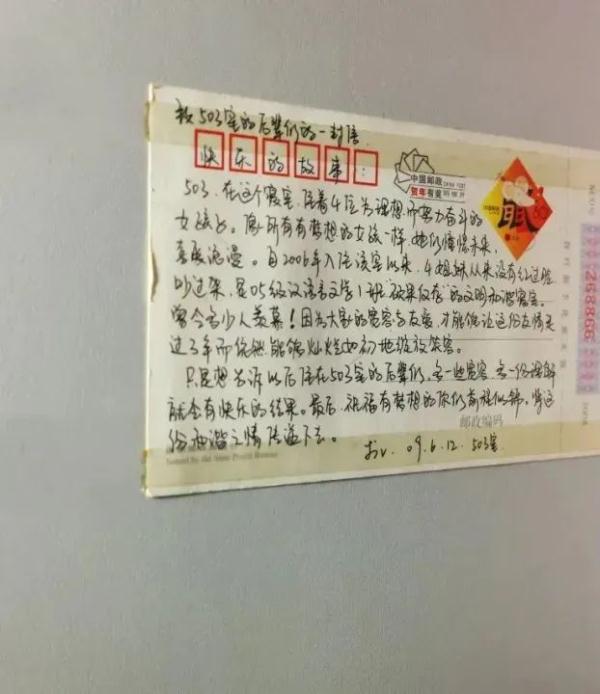 致503室的后辈们的一封信
快乐的故事:
中国邮政
CHINA POST
贺年有奖
503,在这个寝室,住着4位为理想而努力奋斗的
女孩子。像所有有梦想的女孩一样,她们憧憬未来,
喜爱浪漫。自2006年入住该室以来,4姐妹从来没有红过脸
吵过架,是05级汉语言文学1班“硕果仅存”的文明和谐寝室。
曾令多少人羡慕!因为大家的宽容与友爱,才能使让这份友情走
过3年而依然能够灿烂如初地绽放笑容。
只是想告诉以后住在503室的后辈们,多一些宽容,多一份理解
就会有快乐的结果。最后,祝福有梦想的你们前程似锦。将这
份和谐之情传递下去。
邮政编码
09.6.12. 503室
Issued by the State Postal Bureau
268866